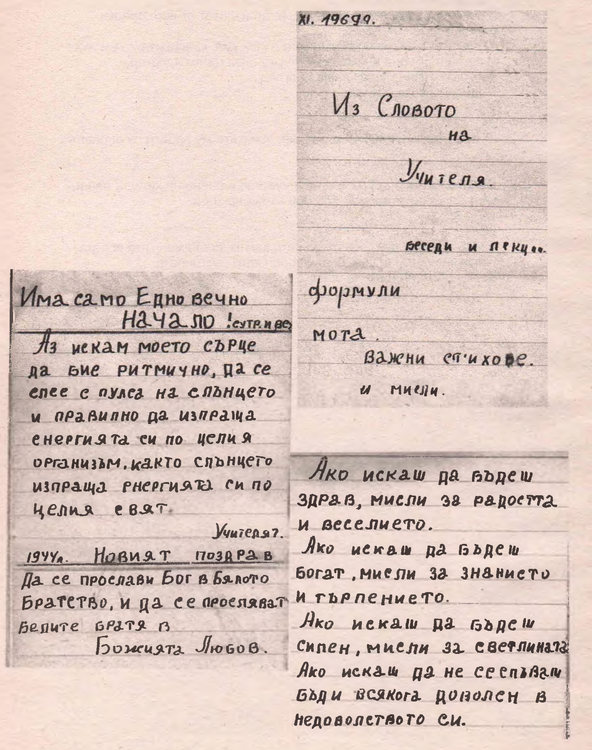 XI. 1969г.
Из Словото
на
Учителя.
беседи и лекц..
формули
мота.
Важни стихове.
и мисли.
Има само Едно вечно
НАЧАЛО! сутр. и веч
Аз искам моето сърце
да бие ритмично, да се
слее с пулса на слънцето
и правилно да изпраща
енергията си по целия
организъм, както слънцето
изпраща енергията си по
целия свят.
Учителят.
1944г. Новият поздрав
Да се прослави Бог в Бялото
Братство, и да се прославят
Белите братя в
Божията Любов.
Ако искаш да бъдеш
здрав, мисли за радостта
и веселието.
Ако искаш да бъдеш
богат, мисли за знанието
и търпението.
Ако искаш да бъдеш
силен, мисли за светлината
Ако искаш да не се спъваш
бъди всякога доволен в
недоволството си.